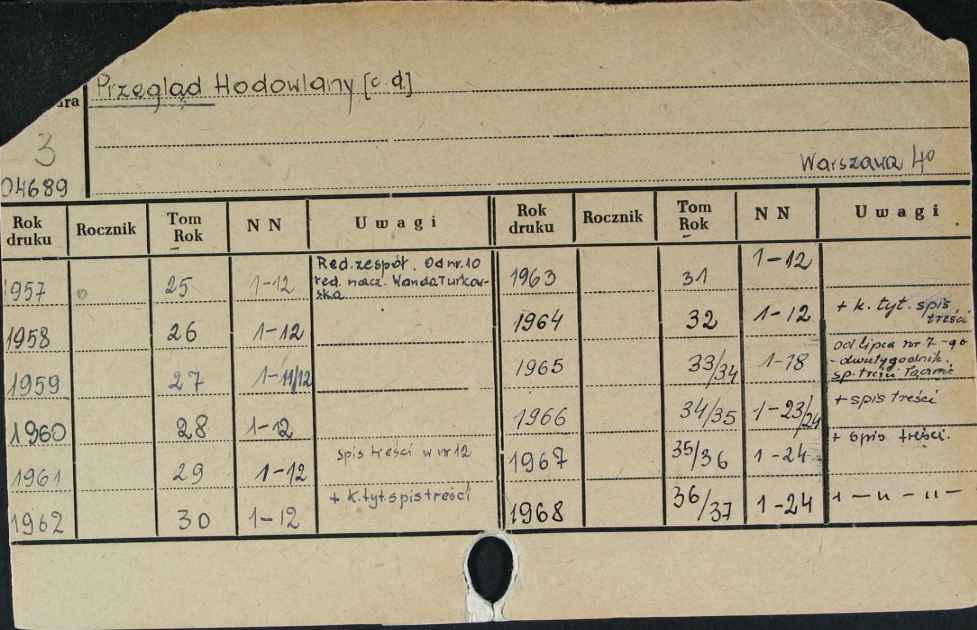 Przegląd Hodowlany [c.d.]
ura
3
04689
Warszawa 4º
Rok druku Rocznik Tom Rok NN Uwagi Rok druku Rocznik Tom Rok NN Uwagi
1957 25 1-12 Red. zespół. Od nr. 10
red. nacz. Wanda Turkow-
ska
1958 26 1-12
1959 27 1-11/12
1960 28 1-12
1961 29 1-12 spis treści w nr 12
1962 30 1-12 + k. tyt. spis treści
1963 31 1-12
1964 32 1-12 + k. tyt. spis
treści
1965 33/34 1-18 od lipca nr 7-go
-dwutygodnik.
sp. treści łącznie
1966 34/35 1-23/24 + spis treści
1967 35/36 1-24 + spis treści.
1968 36/37 1-24 1 — " — " —